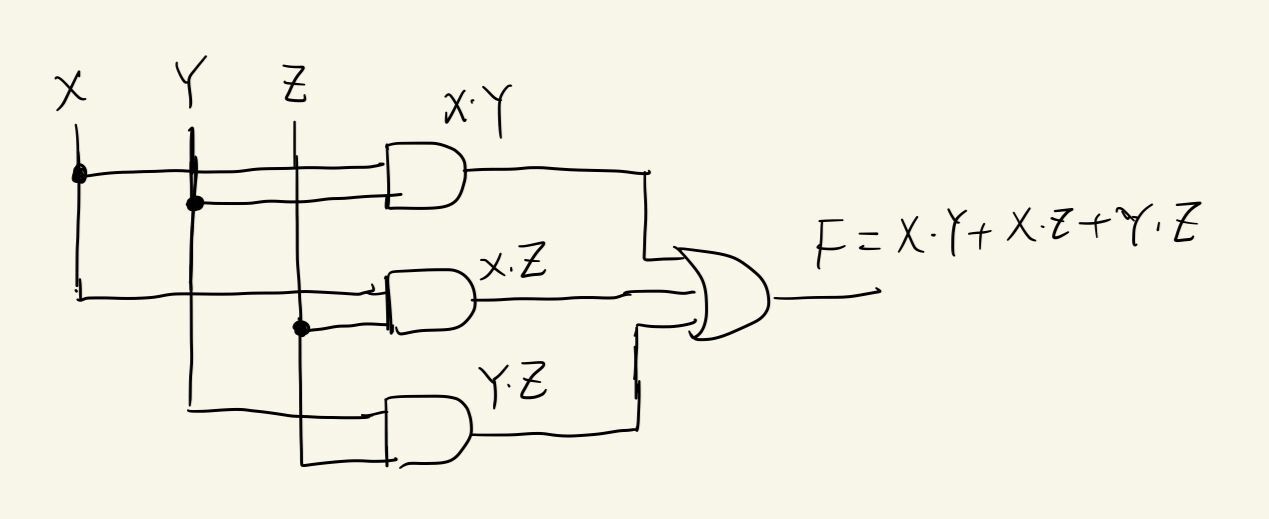 X Y Z
X·Y
X·Z
Y·Z
F = X·Y + X·Z + Y·Z